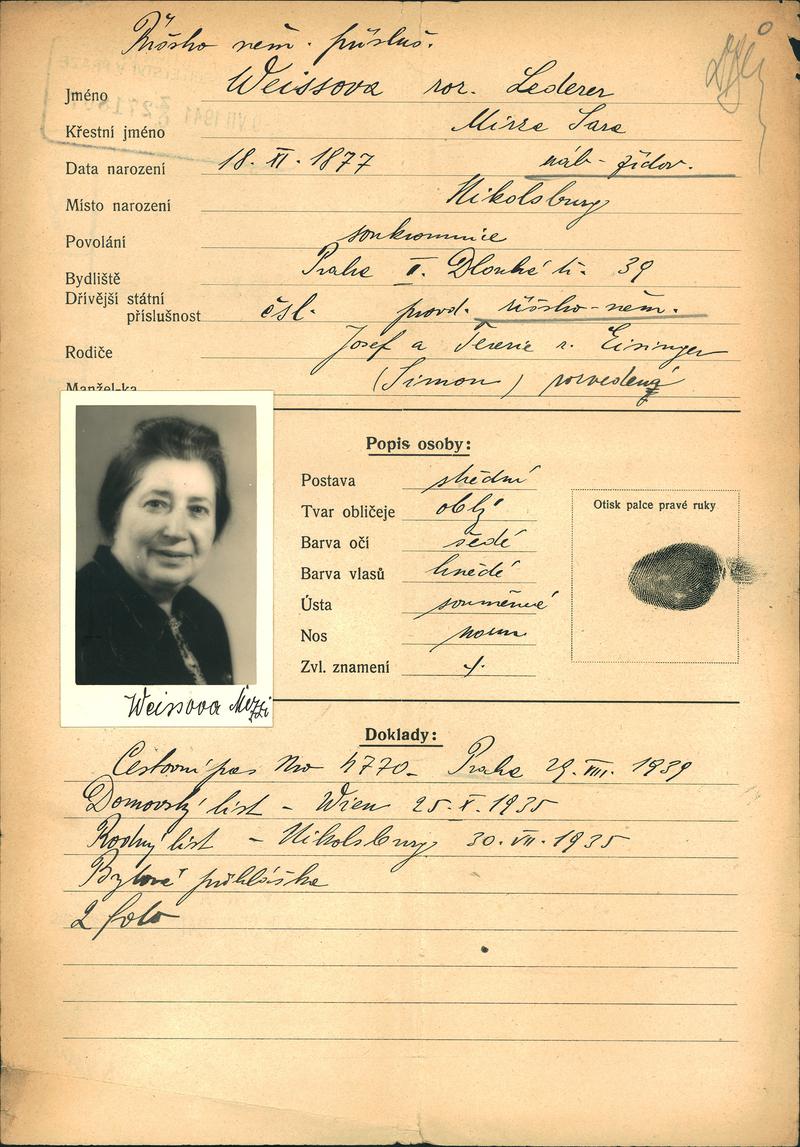 Říšsko něm. přísluš.
Jméno Weissova roz. Lederer
Křestní jméno Mizze Sara
Data narození 18. XI. 1877 náb- židov.
Místo narození Nikolsburg
Povolání soukromnice
Bydliště Praha II. Dlouhá tř. 39
Dřívější státní
příslušnost čsl. provd. říšsko-něm.
Rodiče Josef a Terezie r. Eisinger
Manžel-ka (Simon) rozvedená
Popis osoby:
Postava střední
Tvar obličeje oblý
Barva očí šedé
Barva vlasů hnědé
Ústa souměrné
Nos norm
Zvl. znamení
Otisk palce pravé ruky
Weissova Mizzi
Doklady:
Cestovní pas Nro 4770- Praha 29. VIII. 1939
Domovský list - Wien 25. X. 1935
Rodný list - Nikolsburg 30. VII. 1935
Bytová přihláška
2 foto